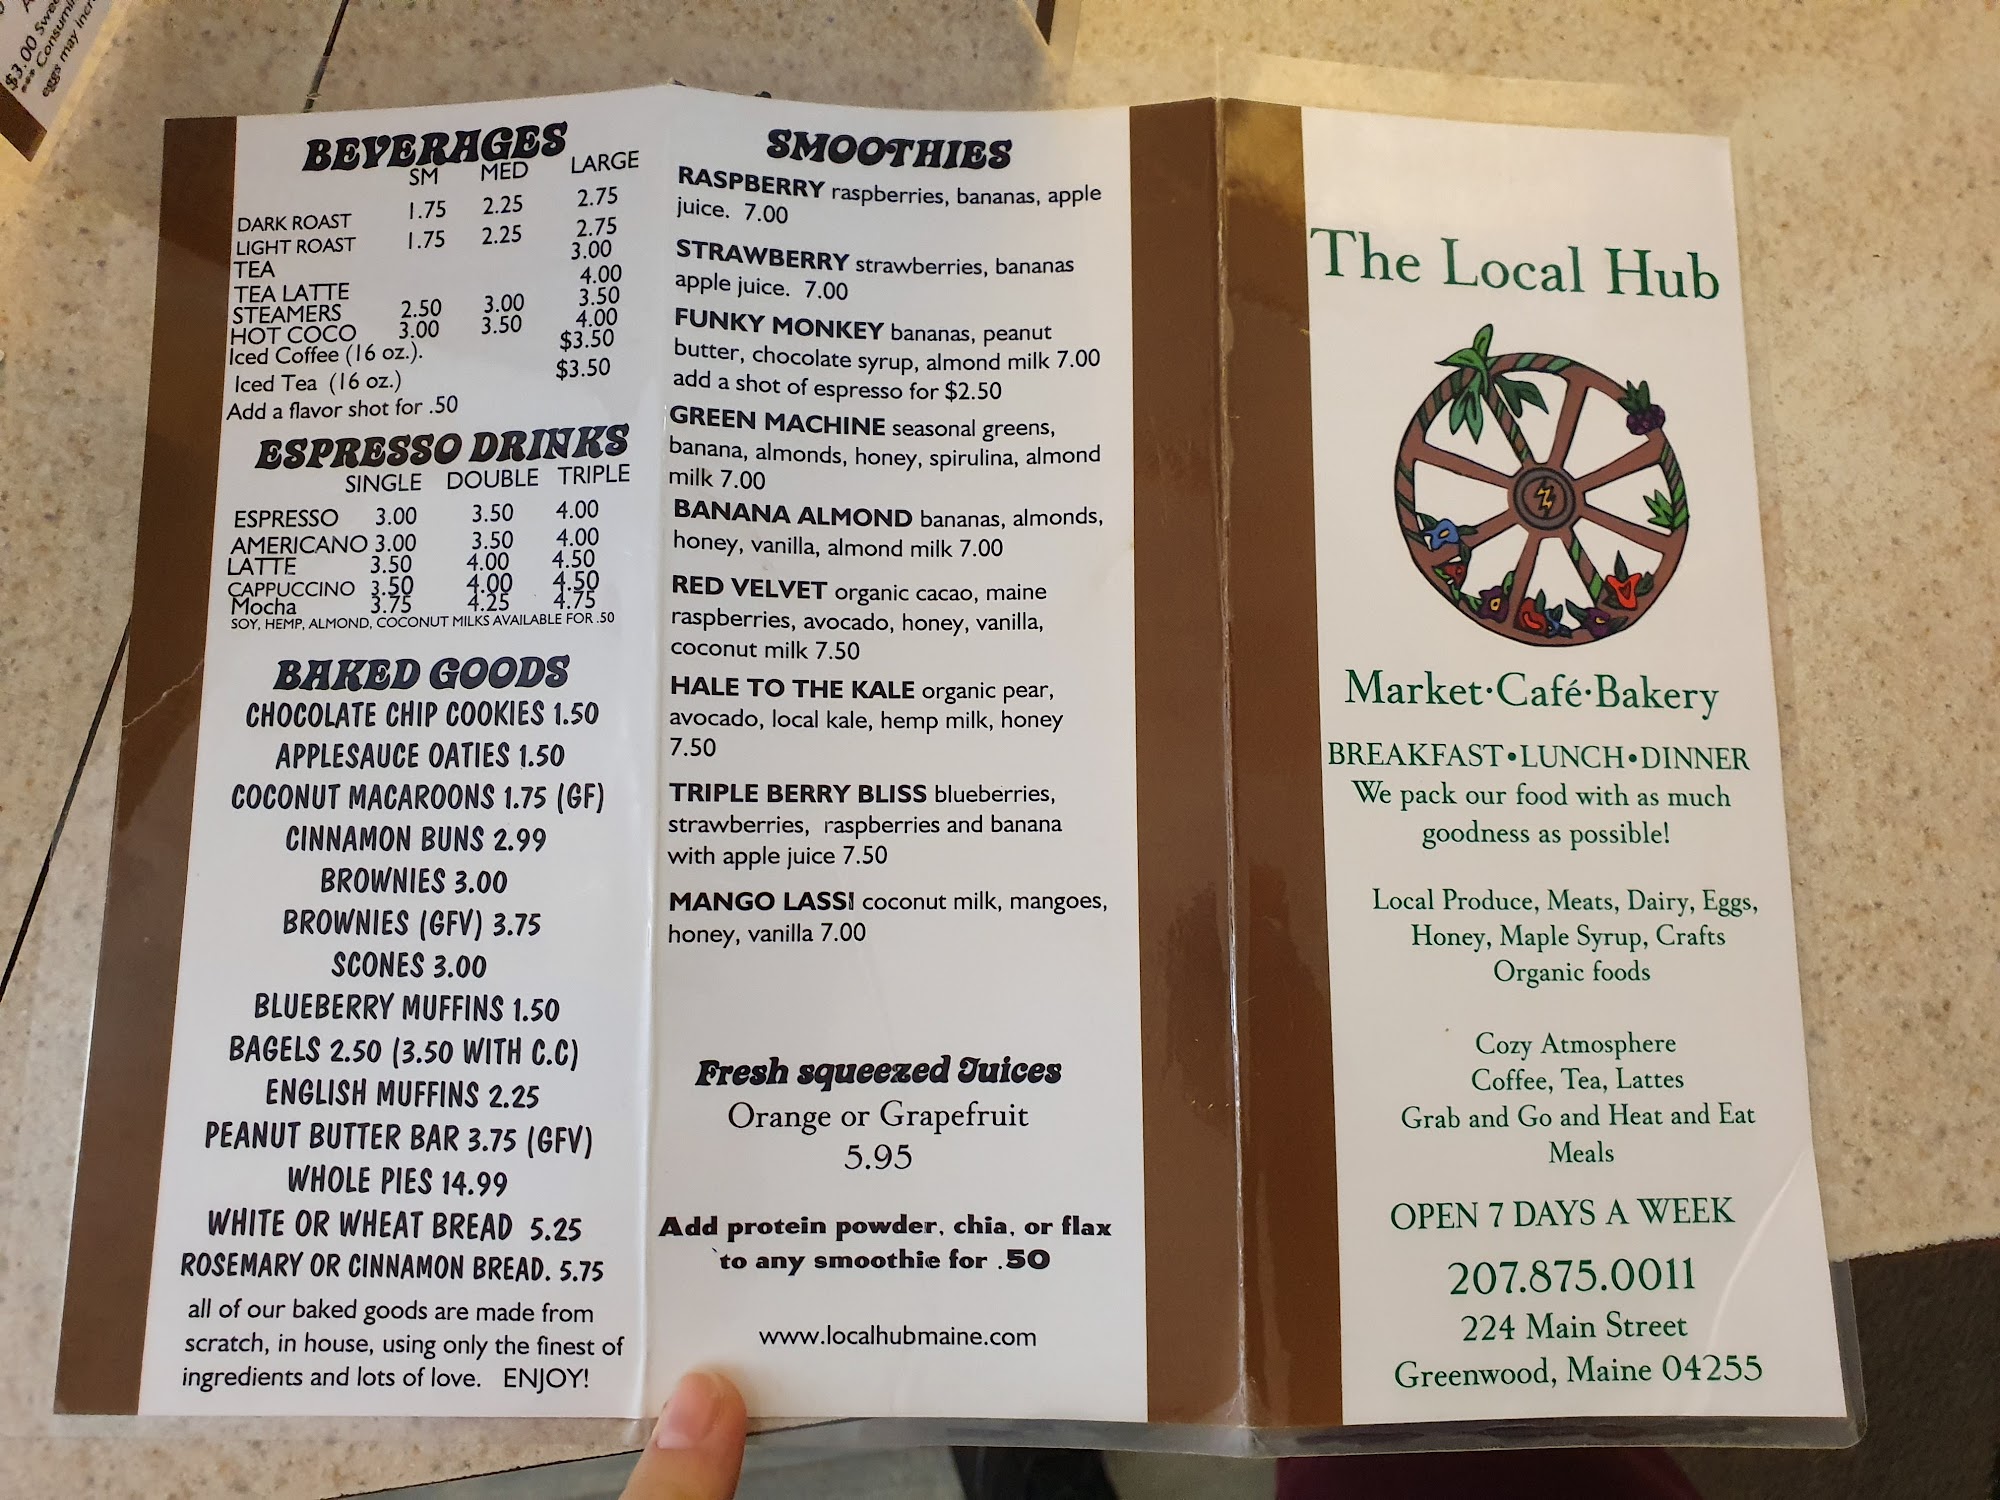 $3.00 Swee
*** Consumin
eggs may incre
BEVERAGES
SM MED LARGE
DARK ROAST 1.75 2.25 2.75
LIGHT ROAST 1.75 2.25 2.75
TEA 3.00
TEA LATTE 4.00
STEAMERS 2.50 3.00 3.50
HOT COCO 3.00 3.50 4.00
Iced Coffee (16 oz.). $3.50
Iced Tea (16 oz.) $3.50
Add a flavor shot for .50
ESPRESSO DRINKS
SINGLE DOUBLE TRIPLE
ESPRESSO 3.00 3.50 4.00
AMERICANO 3.00 3.50 4.00
LATTE 3.50 4.00 4.50
CAPPUCCINO 3.50 4.00 4.50
Mocha 3.75 4.25 4.75
SOY, HEMP, ALMOND, COCONUT MILKS AVAILABLE FOR .50
BAKED GOODS
CHOCOLATE CHIP COOKIES 1.50
APPLESAUCE OATIES 1.50
COCONUT MACAROONS 1.75 (GF)
CINNAMON BUNS 2.99
BROWNIES 3.00
BROWNIES (GFV) 3.75
SCONES 3.00
BLUEBERRY MUFFINS 1.50
BAGELS 2.50 (3.50 WITH C.C)
ENGLISH MUFFINS 2.25
PEANUT BUTTER BAR 3.75 (GFV)
WHOLE PIES 14.99
WHITE OR WHEAT BREAD 5.25
ROSEMARY OR CINNAMON BREAD. 5.75
all of our baked goods are made from
scratch, in house, using only the finest of
ingredients and lots of love. ENJOY!
SMOOTHIES
RASPBERRY raspberries, bananas, apple
juice. 7.00
STRAWBERRY strawberries, bananas
apple juice. 7.00
FUNKY MONKEY bananas, peanut
butter, chocolate syrup, almond milk 7.00
add a shot of espresso for $2.50
GREEN MACHINE seasonal greens,
banana, almonds, honey, spirulina, almond
milk 7.00
BANANA ALMOND bananas, almonds,
honey, vanilla, almond milk 7.00
RED VELVET organic cacao, maine
raspberries, avocado, honey, vanilla,
coconut milk 7.50
HALE TO THE KALE organic pear,
avocado, local kale, hemp milk, honey
7.50
TRIPLE BERRY BLISS blueberries,
strawberries, raspberries and banana
with apple juice 7.50
MANGO LASSI coconut milk, mangoes,
honey, vanilla 7.00
Fresh squeezed Juices
Orange or Grapefruit
5.95
Add protein powder, chia, or flax
to any smoothie for .50
www.localhubmaine.com
The Local Hub
Market·Café·Bakery
BREAKFAST•LUNCH•DINNER
We pack our food with as much
goodness as possible!
Local Produce, Meats, Dairy, Eggs,
Honey, Maple Syrup, Crafts
Organic foods
Cozy Atmosphere
Coffee, Tea, Lattes
Grab and Go and Heat and Eat
Meals
OPEN 7 DAYS A WEEK
207.875.0011
224 Main Street
Greenwood, Maine 04255